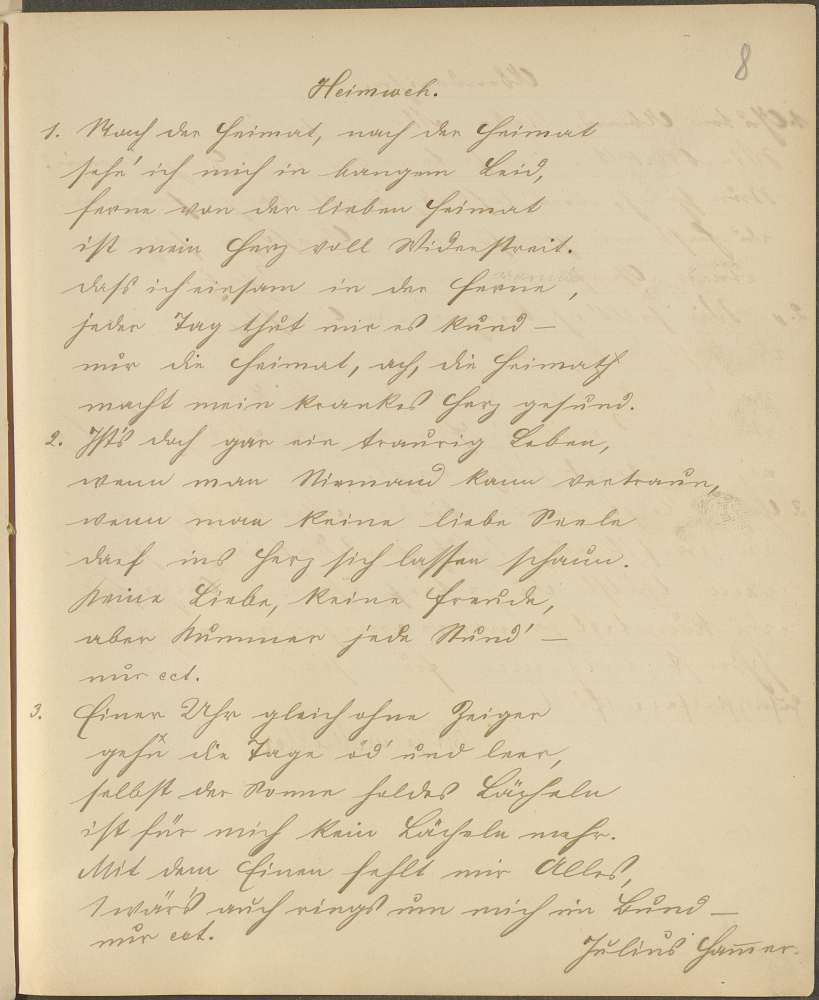 8
Heimweh.
1. Nach der Heimat, nach der Heimat
sehn' ich mich in bangem Leid,
ferne von der lieben Heimat
ist mein Herz voll Widerstreit.
dass ich einsam in der Ferne,
jeder Tag thut mir es kund –
nur die Heimat, ach, die Heimath
macht mein krankes Herz gesund.
2. Ist's doch gar ein traurig Leben,
wenn man Niemand kann vertraun,
wenn man keine liebe Seele
darf ins Herz sich lassen schaun.
Keine Liebe, keine Freude,
aber Kummer jede Stund' –
nur ect.
3. Einer Uhr gleich ohne Zeiger
gehn die Tage öd' und leer,
selbst der Sonne holdes Lächeln
ist für mich kein Lächeln mehr.
Mit dem Einen fehlt mir Alles,
wär's auch rings um mich im Bund –
nur ect.
Julius Ham̅er.